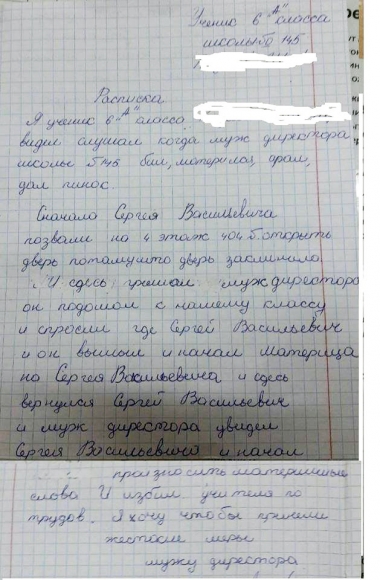 Ученик 6 "А" класса
школы 145
Расписка
Я ученик 6 "А" класса
видел слушал когда муж директора
школы 145 бил, матерился, орал,
дал пинос.
Сначало Сергея Васильевича
позвали на 4 этаж 404 б. открыть
дверь потамушто дверь заклинило
И сдесь пришол муж директора
он подошол к нашему классу
и спросил где Сергей Васильевич
и он вышыл и начал материца
на Сергея Васильевича и сдесь
вернулся Сергей Васильевич
и муж директора увидел
Сергея Васильевича и начал
произносить матерпшные
слова И избил учителя по
трудов. Я хочу чтобы приняли
жестокие меры
мужу директора